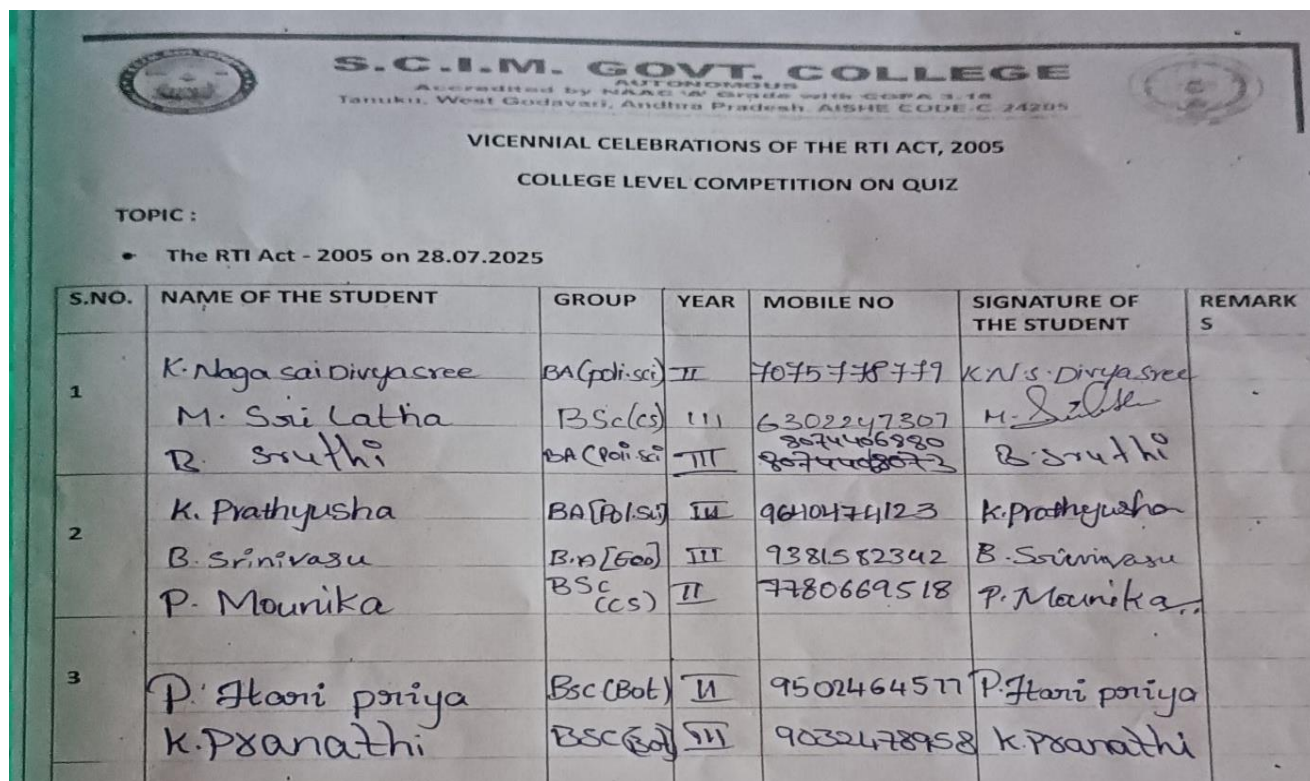 S.C.I.M. GOVT. COLLEGE
AUTONOMOUS
Accredited by NAAC 'A' Grade with CGPA 3.18
Tanuku, West Godavari, Andhra Pradesh. AISHE CODE-C 24205
VICENNIAL CELEBRATIONS OF THE RTI ACT, 2005
COLLEGE LEVEL COMPETITION ON QUIZ
TOPIC :
• The RTI Act - 2005 on 28.07.2025
S.NO. NAME OF THE STUDENT GROUP YEAR MOBILE NO SIGNATURE OF THE STUDENT REMARKS
1 K. Naga sai Divyasree BA(poli.sci) II 7075778779 K.N.S. Divyasree
M. Sri Latha BSc(cs) III 6302247307 M.
B. Sruthi BA(Poli.sci III 8074406880 B. Sruthi
2 K. Prathyusha BA[Pol.Sci] III 9640474123 K. Prathyusha
B. Srinivasu B.A [Eco] III 9381582342 B. Srinivasu
P. Mounika BSc (CS) II 7780669518 P. Mounika
3 P. Hari priya BSc (Bot) II 9502464577 P. Hari priya
K. Pranathi BSC (Bot) III 9032478958 K. Pranathi